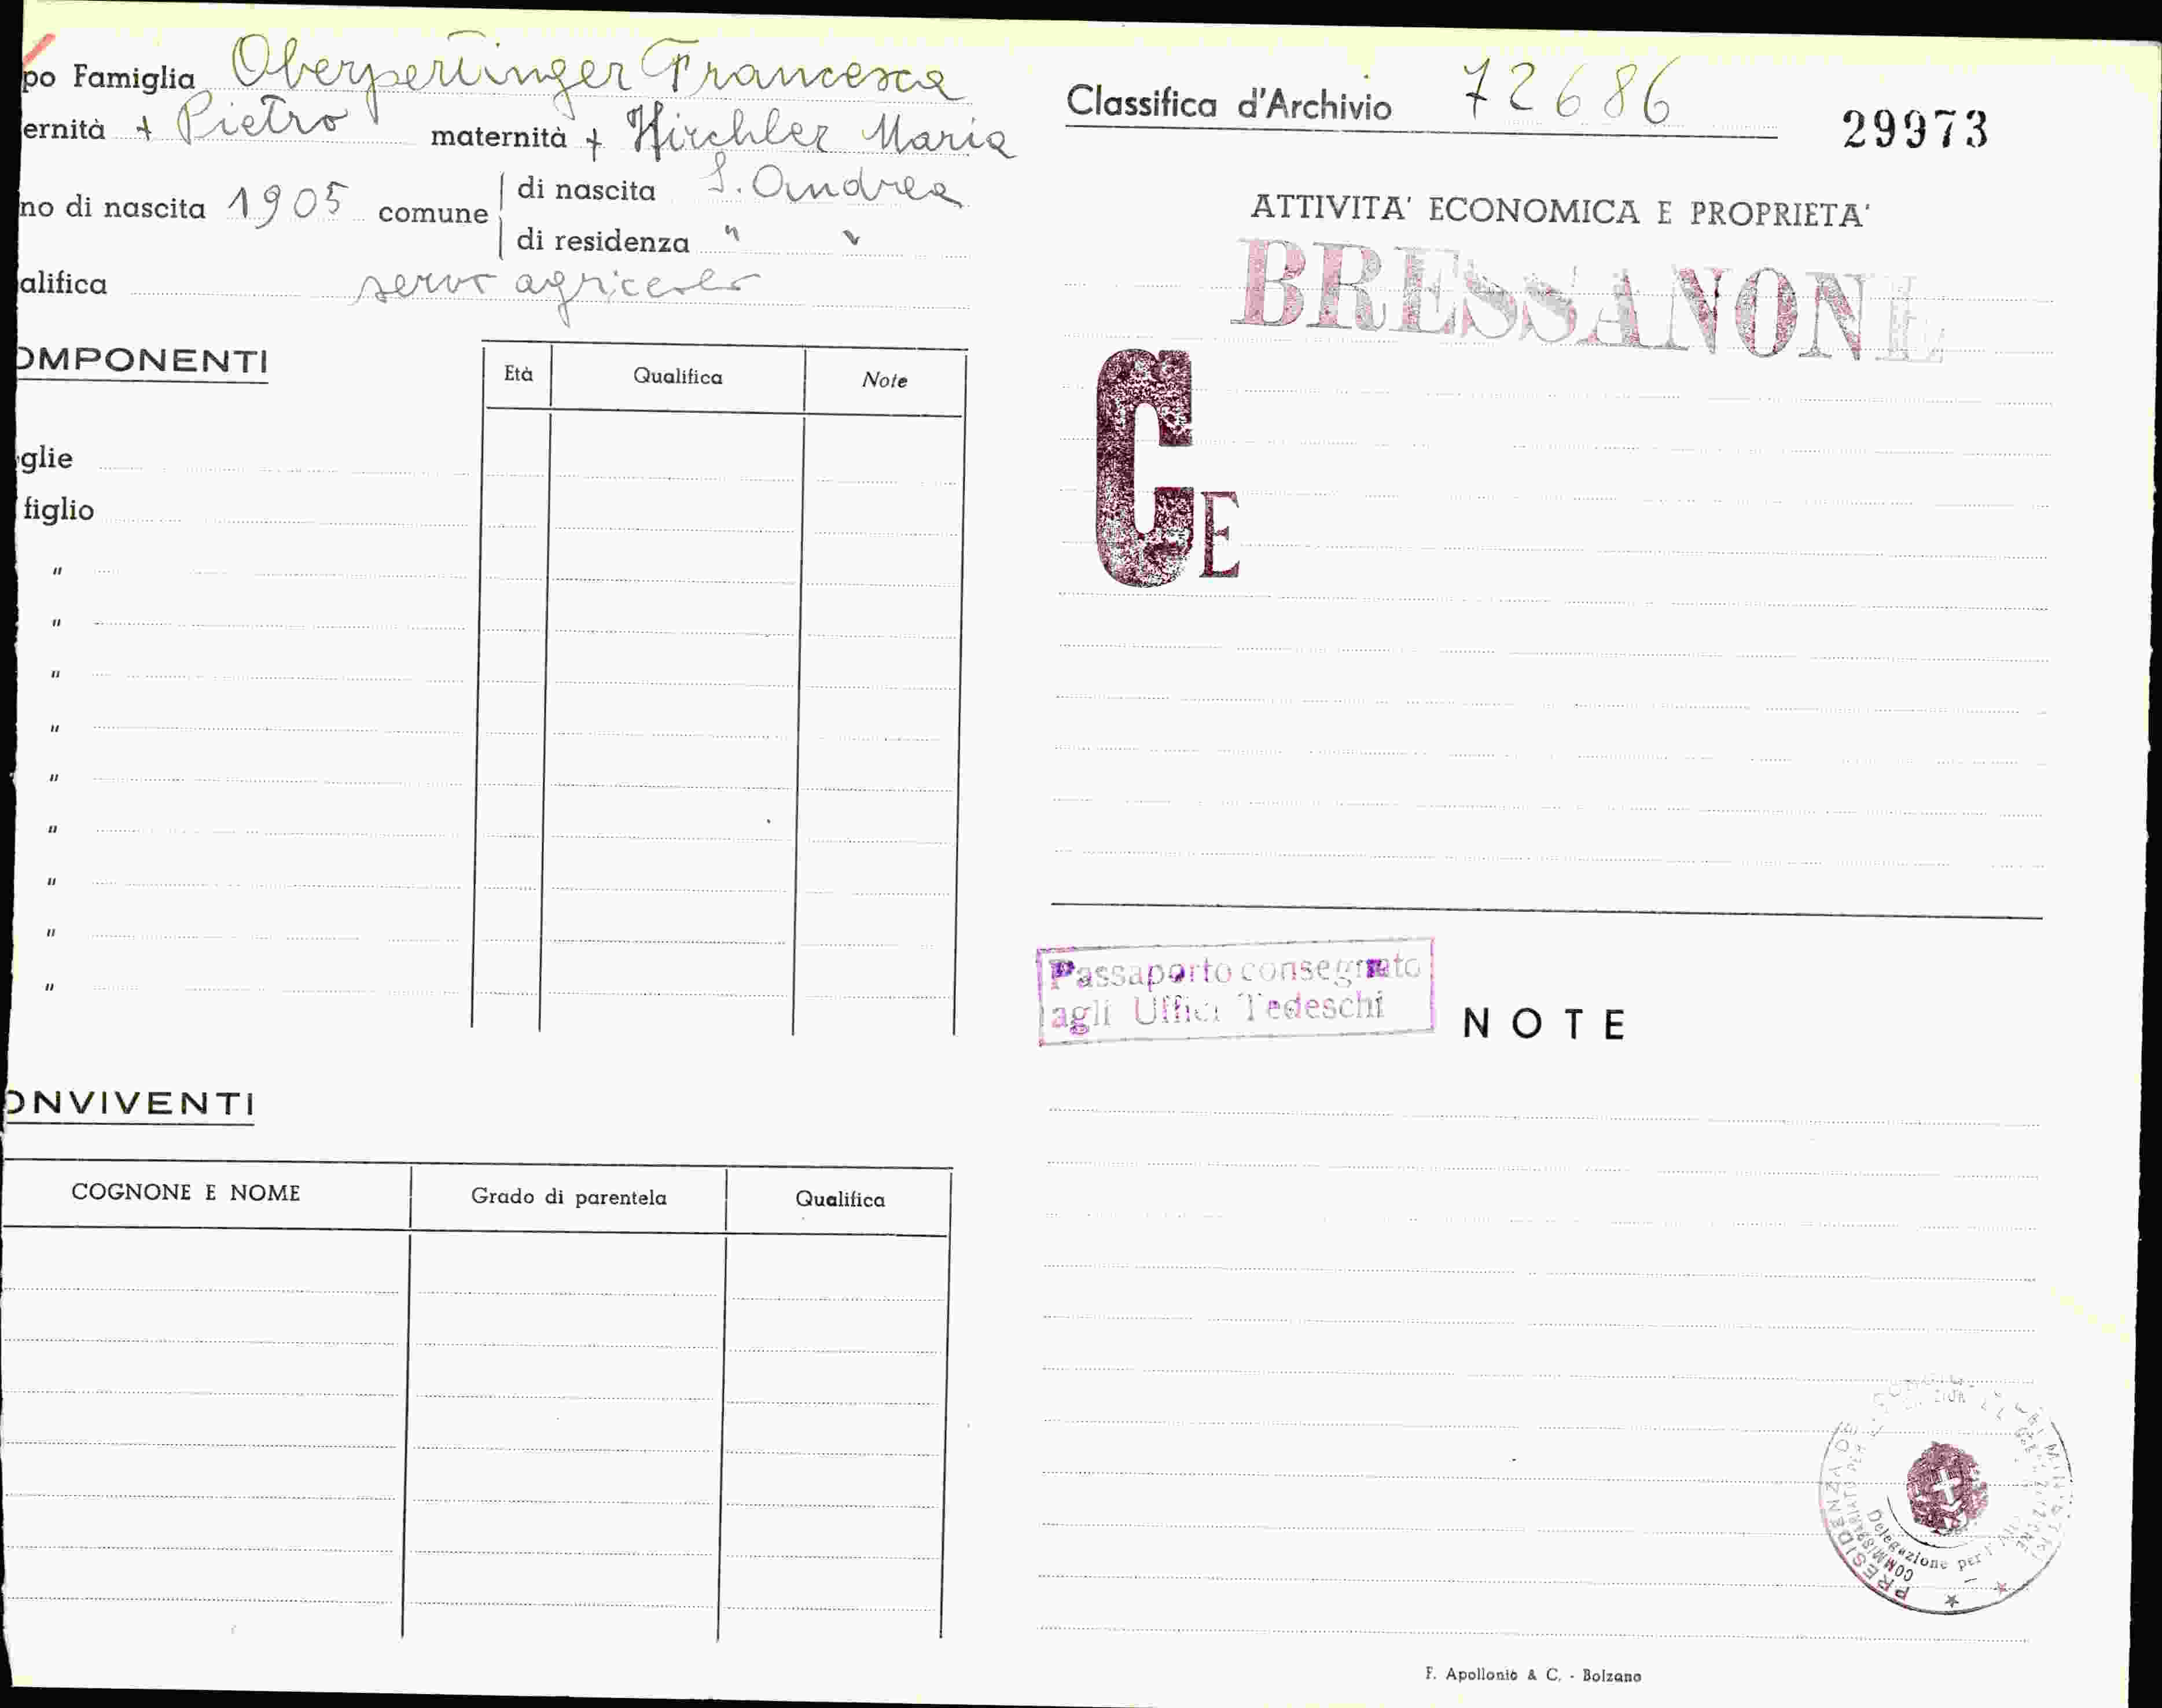 po Famiglia Oberpertinger Francesca
ernità + Pietro maternità + Hirchler Maria
no di nascita 1905 comune di nascita S. Andrea
di residenza " "
alifica servo agricolo
OMPONENTI
Età Qualifica Note
glie
figlio
"
"
"
"
"
"
"
"
"
ONVIVENTI
COGNONE E NOME Grado di parentela Qualifica
Classifica d'Archivio 72686 29973
ATTIVITA' ECONOMICA E PROPRIETA'
BRESSANONE
CE
Passaporto consegnato
agli Uffici Tedeschi
NOTE
PRESIDENZA DE
COMMISSARIATO PER
Delegazione per
F. Apollonio & C. - Bolzano